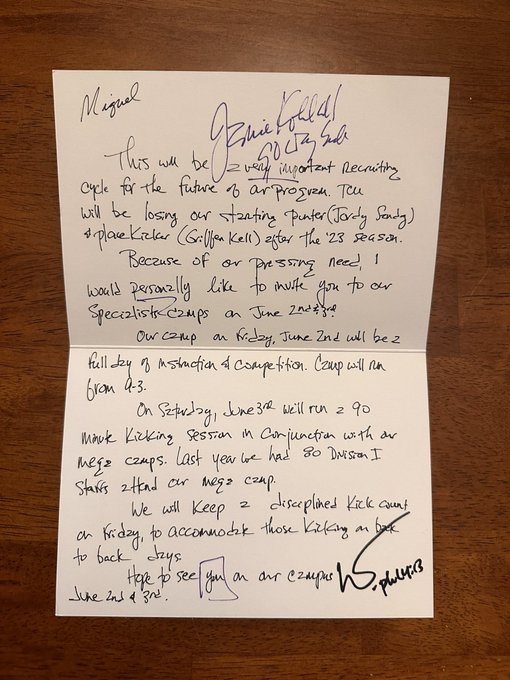 Miguel
This will be a very important recruiting
cycle for the future of our program. TCU
will be losing our starting punter (Jordy Sandy)
& place Kicker (Griffen Kell) after the '23 season.
Because of our pressing need, I
would personally like to invite you to our
Specialists camps on June 2nd & 3rd
Our camp on Friday, June 2nd will be a
full day of instruction & competition. Camp will run
from 9-3.
On Saturday, June 3rd we'll run a 90
minute Kicking session in conjunction with our
mega camps. Last year we had 80 Division I
Staffs attend our mega camp.
We will keep a disciplined Kick count
on Friday, to accommodate those kicking on back
to back days.
Hope to see you on our campus
June 2nd & 3rd.